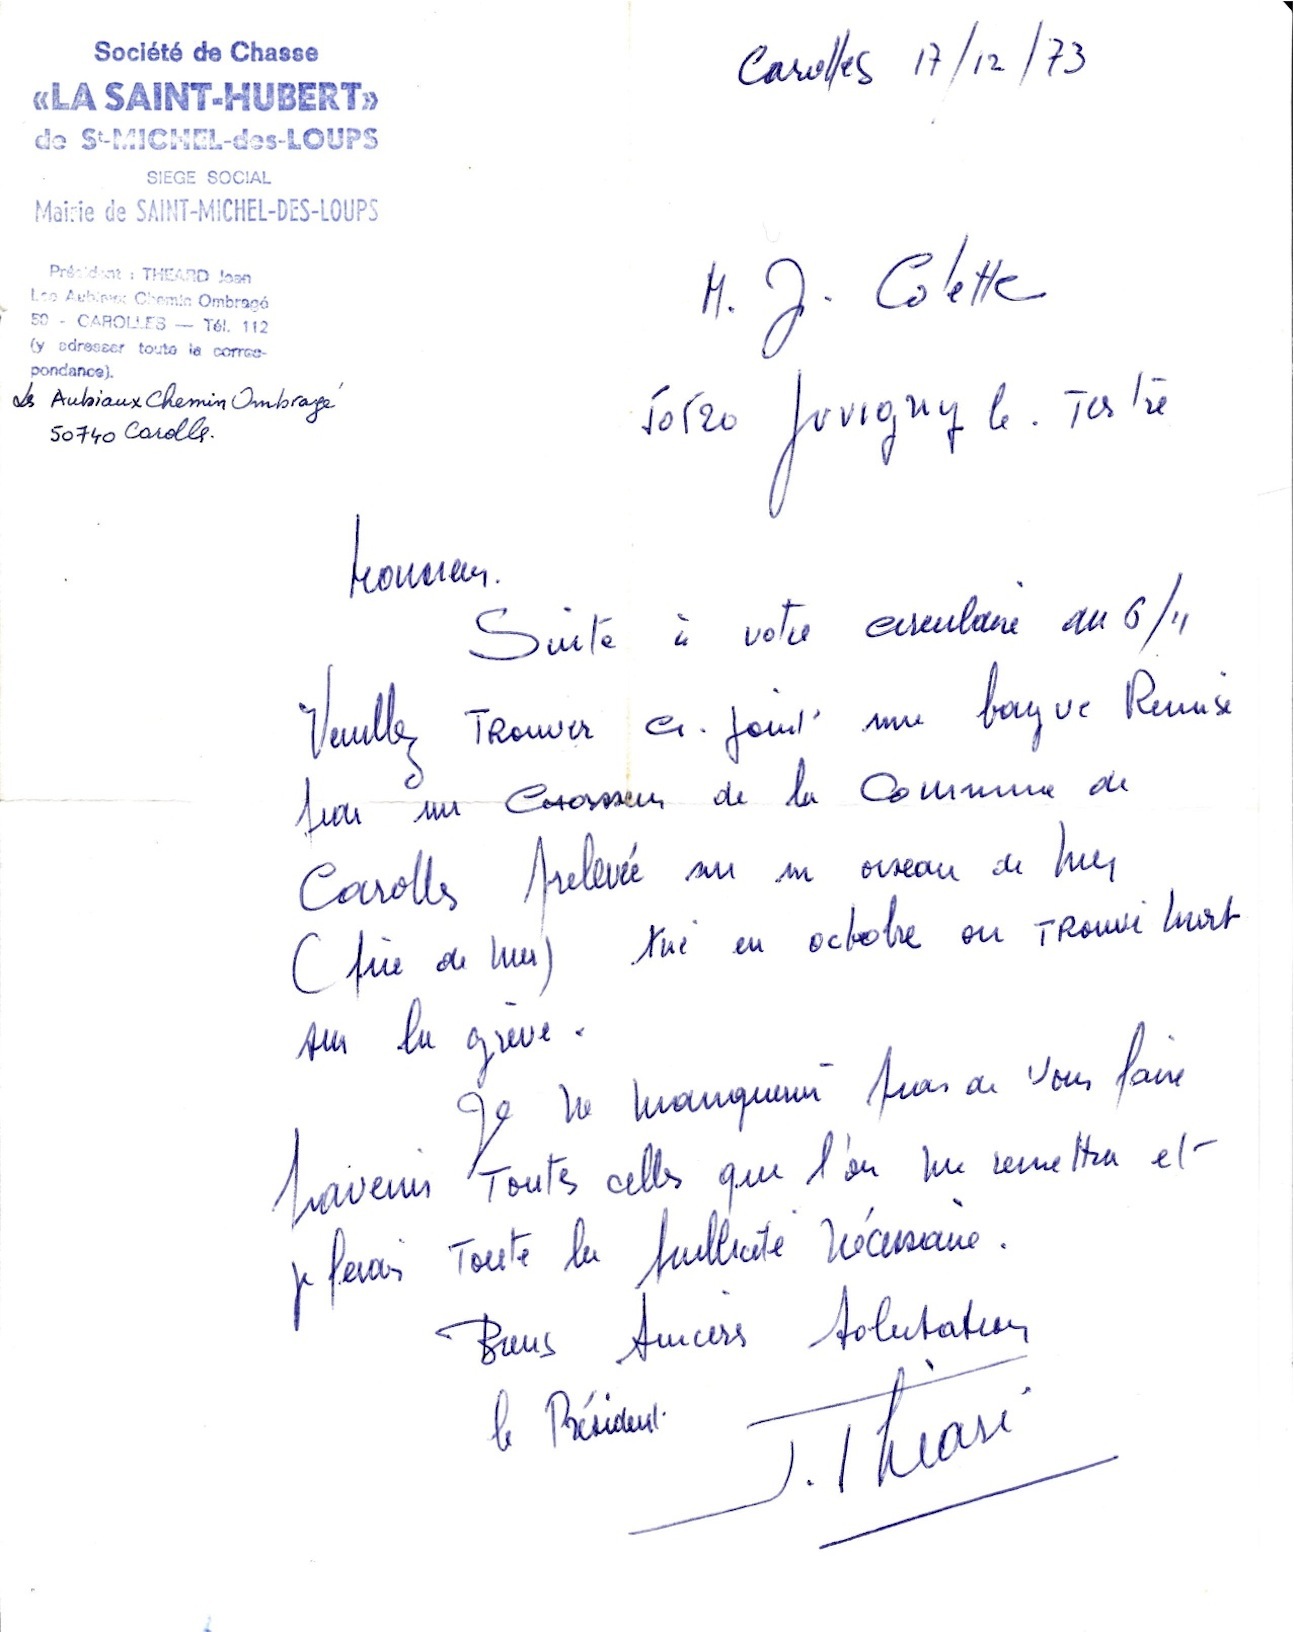 Société de Chasse
«LA SAINT-HUBERT»
de St-MICHEL-des-LOUPS
SIEGE SOCIAL
Mairie de SAINT-MICHEL-DES-LOUPS
Président : THEARD Jean
Les Aubiaux Chemin Ombragé
50 - CAROLLES — Tél. 112
(y adresser toute la corres-
pondance).
Les Aubiaux Chemin Ombragé
50740 Carolles.
Carolles 17/12/73
M. J. Colette
50520 Juvigny le. Tertre
Monsieur.
Suite à votre circulaire du 6/11
Veuillez Trouver ci-joint une bague Remise
par un Chasseur de la Commune de
Carolles prélevée sur un oiseau de mer
(pie de mer) tué en octobre ou Trouvé mort
sur la grève.
Je ne manquerai pas de vous faire
parvenir Toutes celles que l'on me remettra et
je ferais Toute la publicité nécessaire.
Biens sincères salutations
le Président
J. Theard